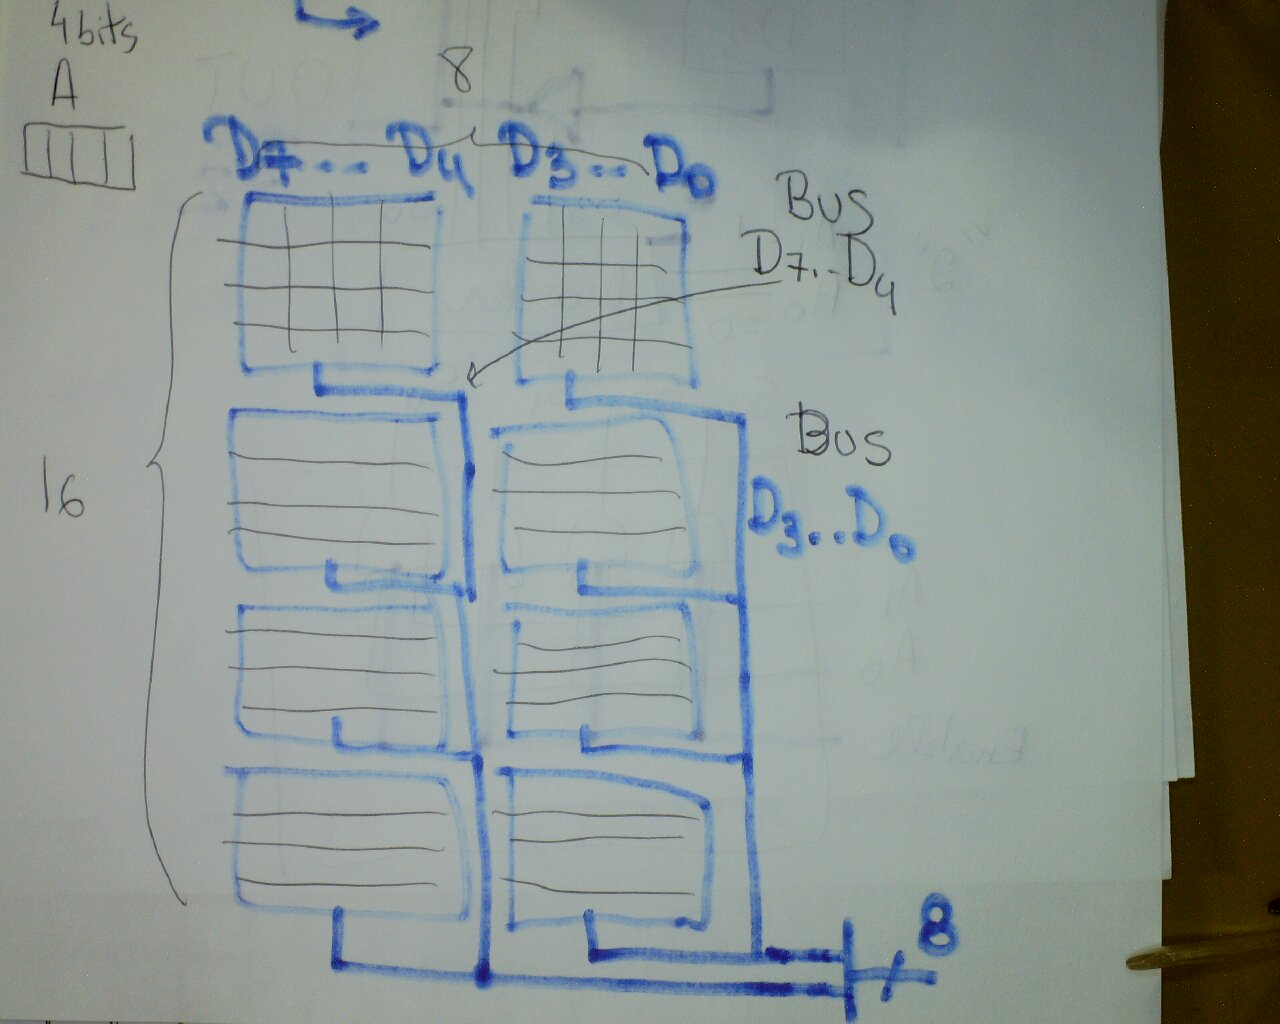 4bits
A
8
D7... D4 D3.. D0
Bus
D7..D4
Bus
16
D3..D0
8